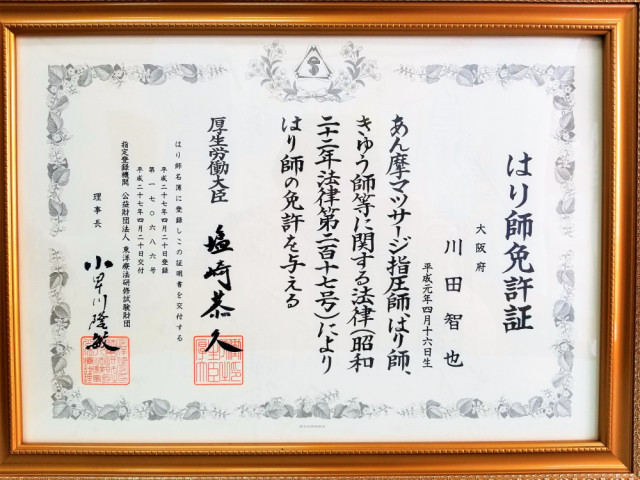 はり師免許証
大阪府
川田智也
平成元年四月十六日生
あん摩マツサージ指圧師、はり師、
きゆう師等に関する法律(昭和
二十二年法律第二百十七号)により
はり師の免許を与える
厚生労働大臣 塩崎恭久
はり師名簿に登録しこの証明書を交付する
平成二十七年四月二十日登録
第一七〇六八六号
平成二十七年四月二十日交付
指定登録機関 公益財団法人 東洋療法研修試験財団
理事長 小早川隆敏